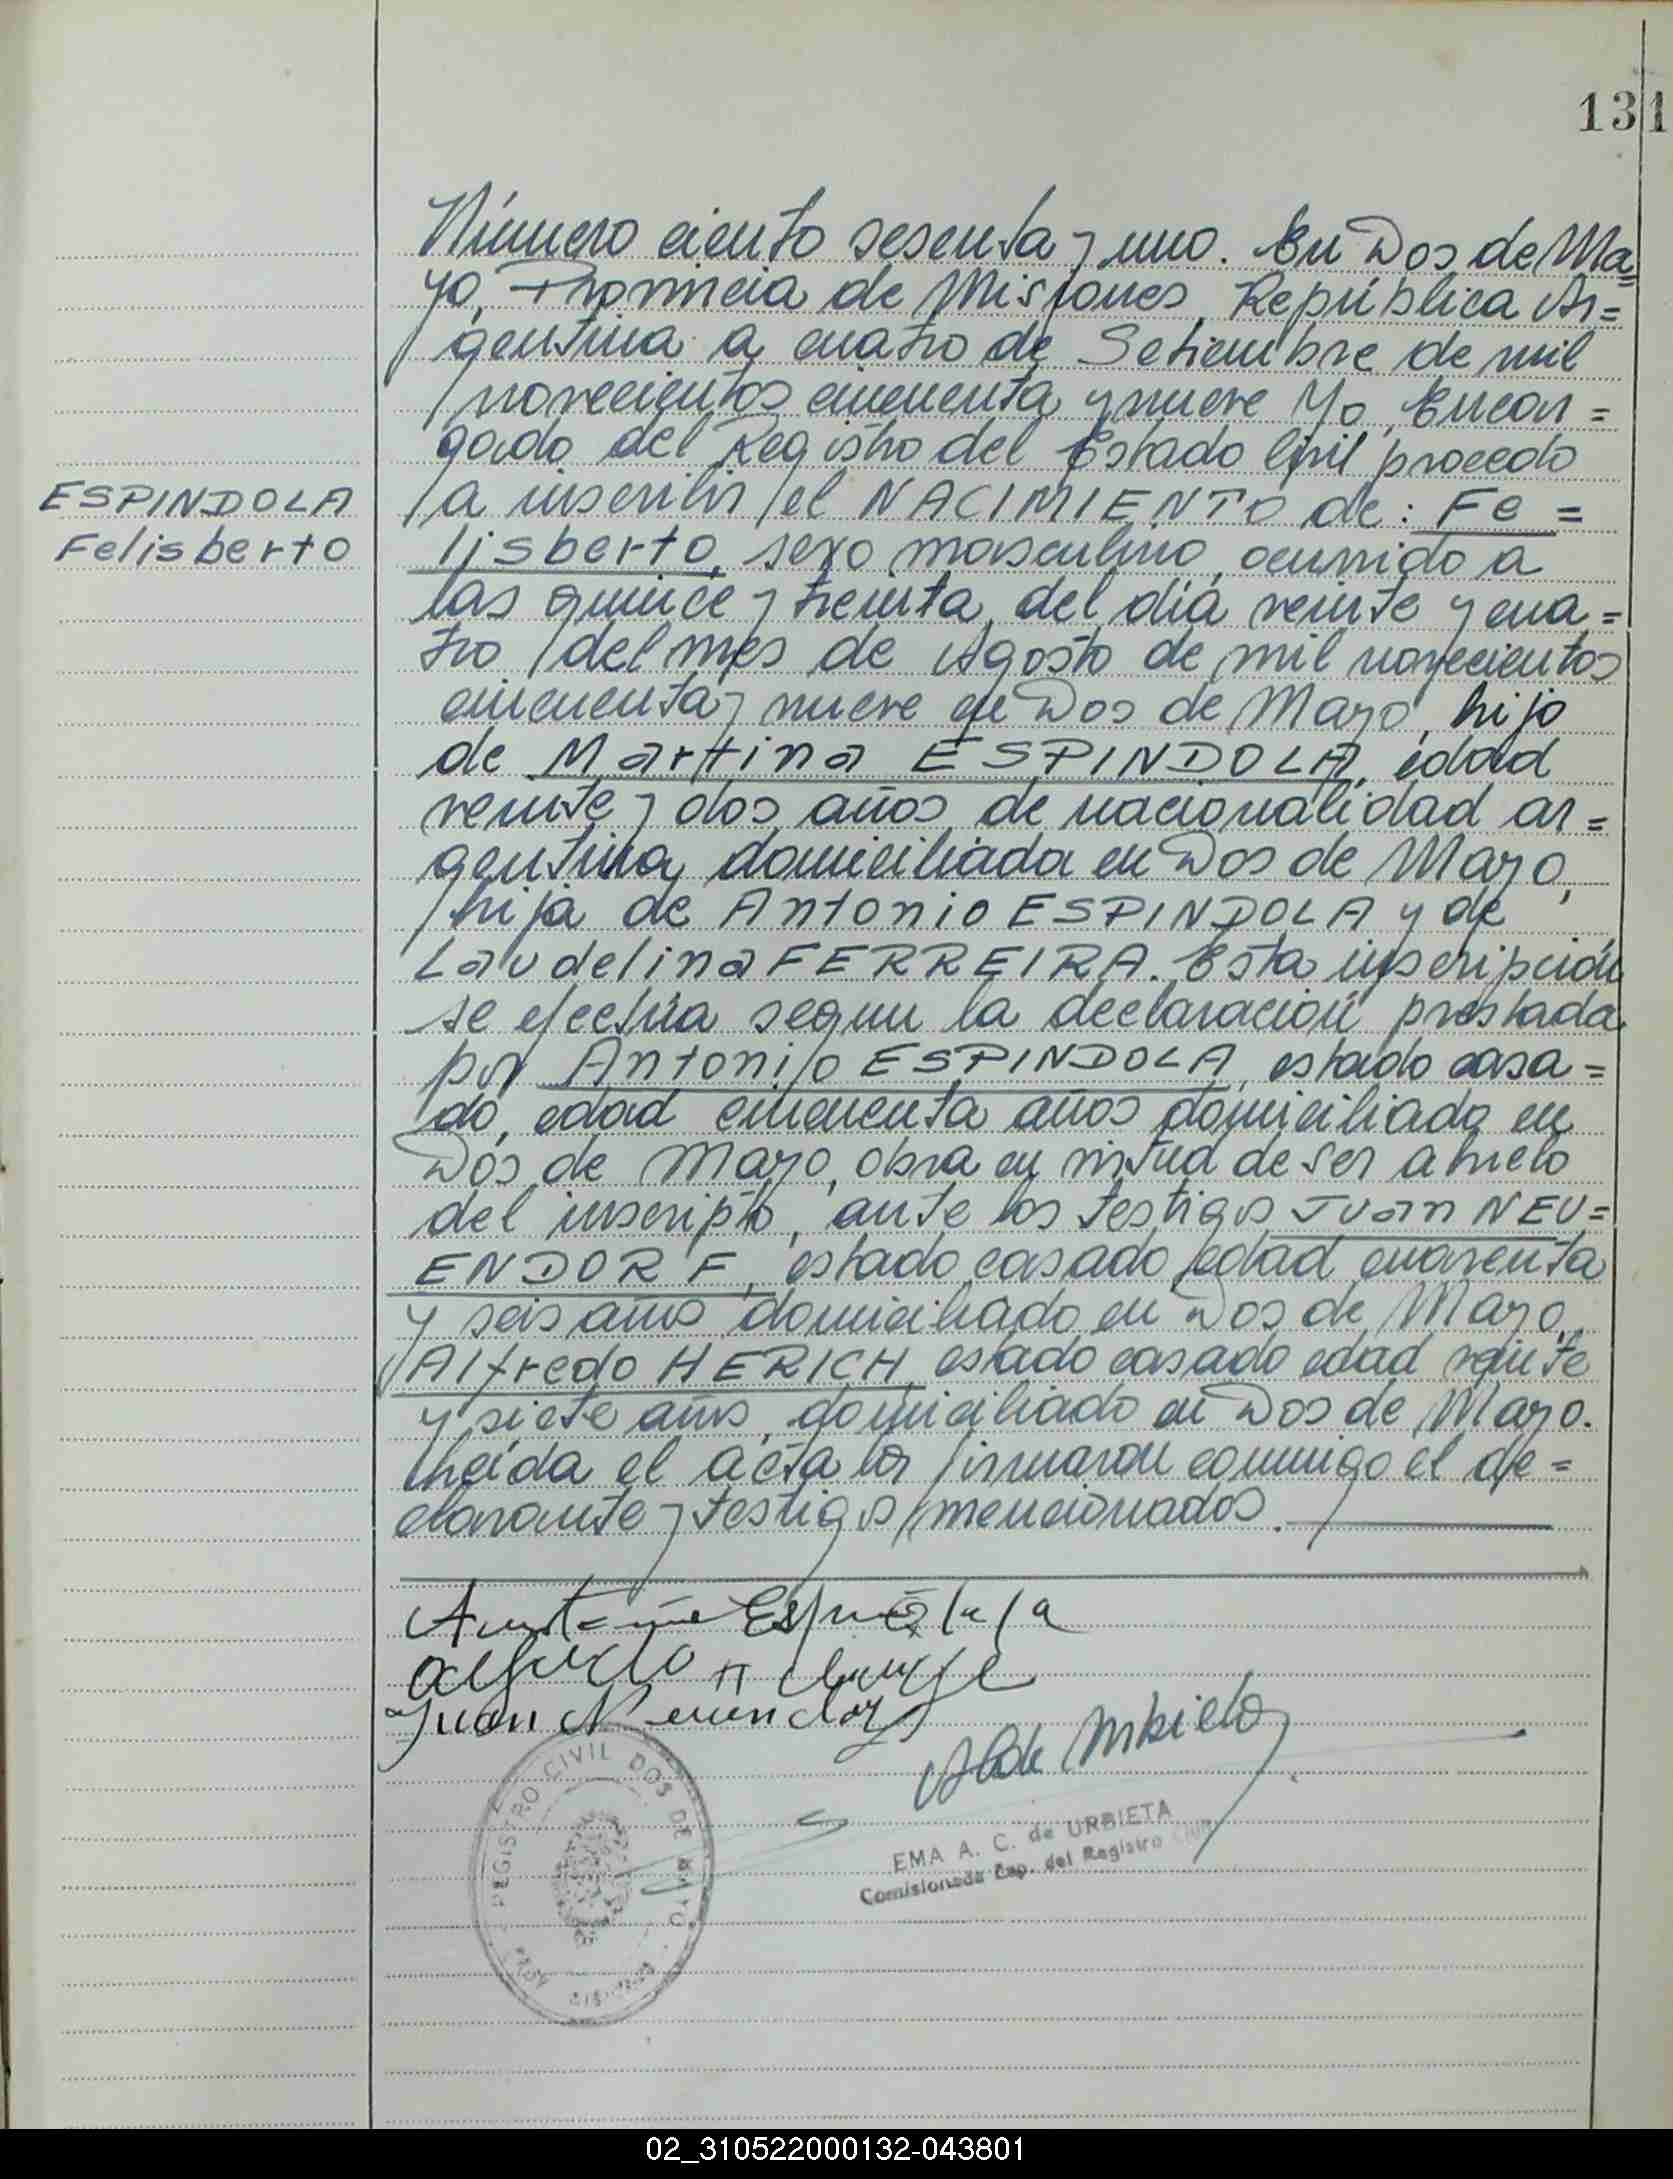 131
Número ciento sesenta y uno. En Dos de Ma=
yo, Provincia de Misiones, República Ar=
gentina a cuatro de Setiembre de mil
novecientos cincuenta y nueve Yo, Encar=
gado del Registro del Estado Civil procedo
ESPINDOLA
Felisberto
a inscribir el NACIMIENTO de: Fe=
lisberto, sexo masculino, ocurrido a
las quince y treinta, del día veinte y cua=
tro del mes de Agosto de mil novecientos
cincuenta y nueve en Dos de Mayo, hijo
de Martina ESPINDOLA, edad
veinte y dos años de nacionalidad ar=
gentina domiciliada en Dos de Mayo,
hija de Antonio ESPINDOLA y de
Laudelina FERREIRA. Esta inscripción
se efectúa segun la declaración prestada
por Antonio ESPINDOLA, estado casa=
do, edad cincuenta años domiciliado en
Dos de Mayo, obra en virtud de ser abuelo
del inscripto, ante los testigos Juan NEU=
ENDORF, estado casado edad cuarenta
y seis años domiciliado en Dos de Mayo,
Alfredo HERICH estado casado edad veinte
y siete años, domiciliado en Dos de Mayo.
Leída el acta la firmaron conmigo el de=
clarante y testigos mencionados.
Juan Neuendorf
REGISTRO CIVIL DOS DE MAYO
EMA A. C. de URBIETA
Comisionada Esp. del Registro Civil
02_310522000132-043801